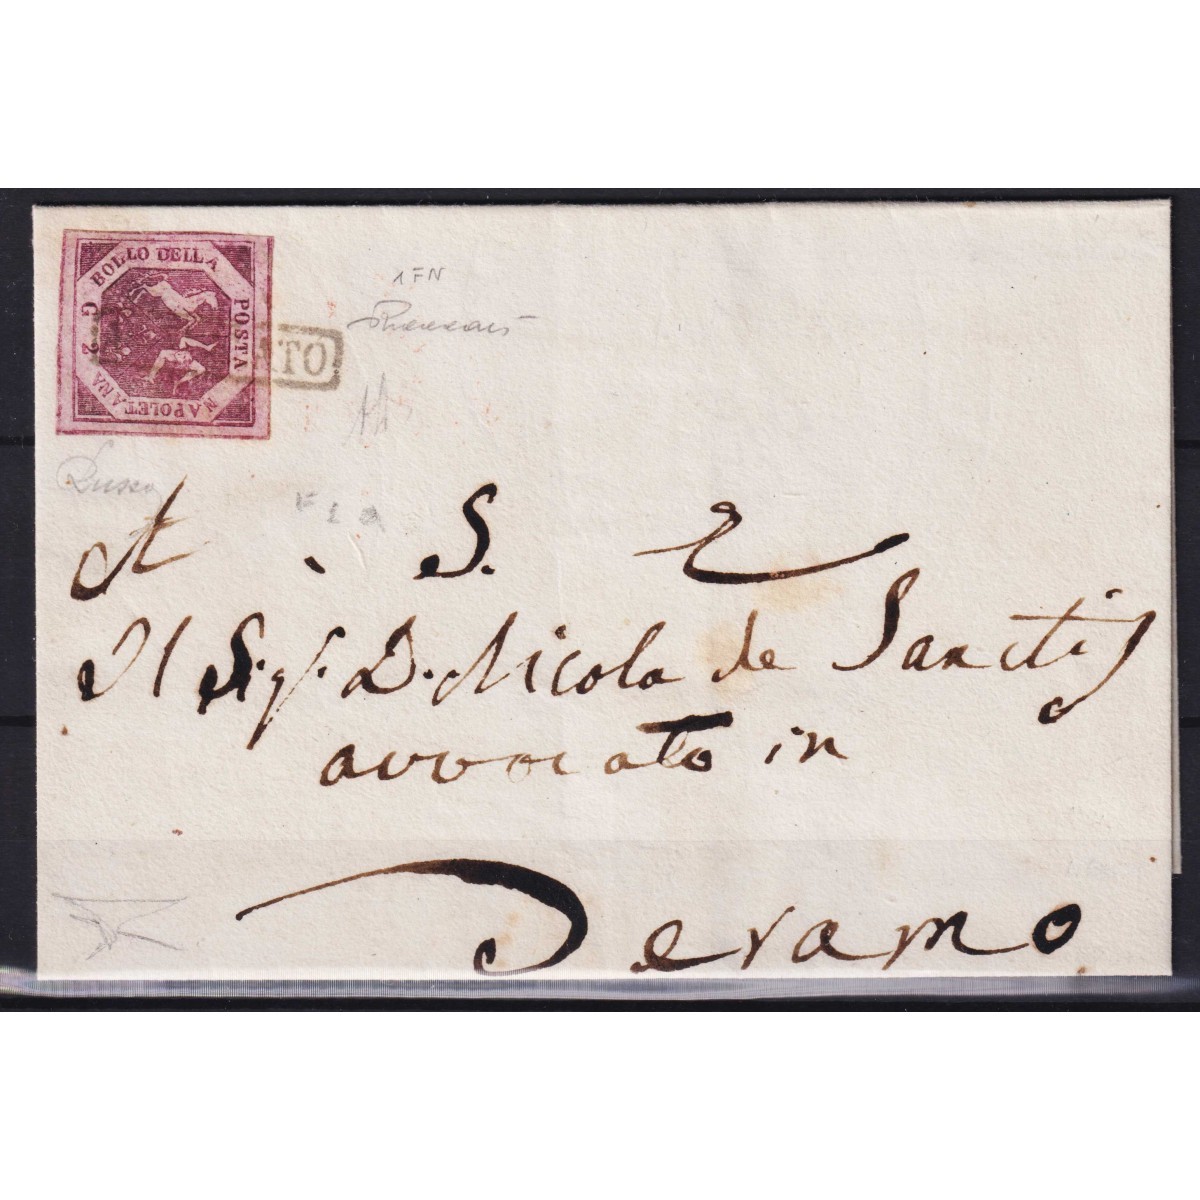 BOLLO DELLA
POSTA
NAPOLETANA
G 2
ATO
1 FN
A. S. E
Il Sig.r D. Nicola de Sanctis
avvocato in
Teramo